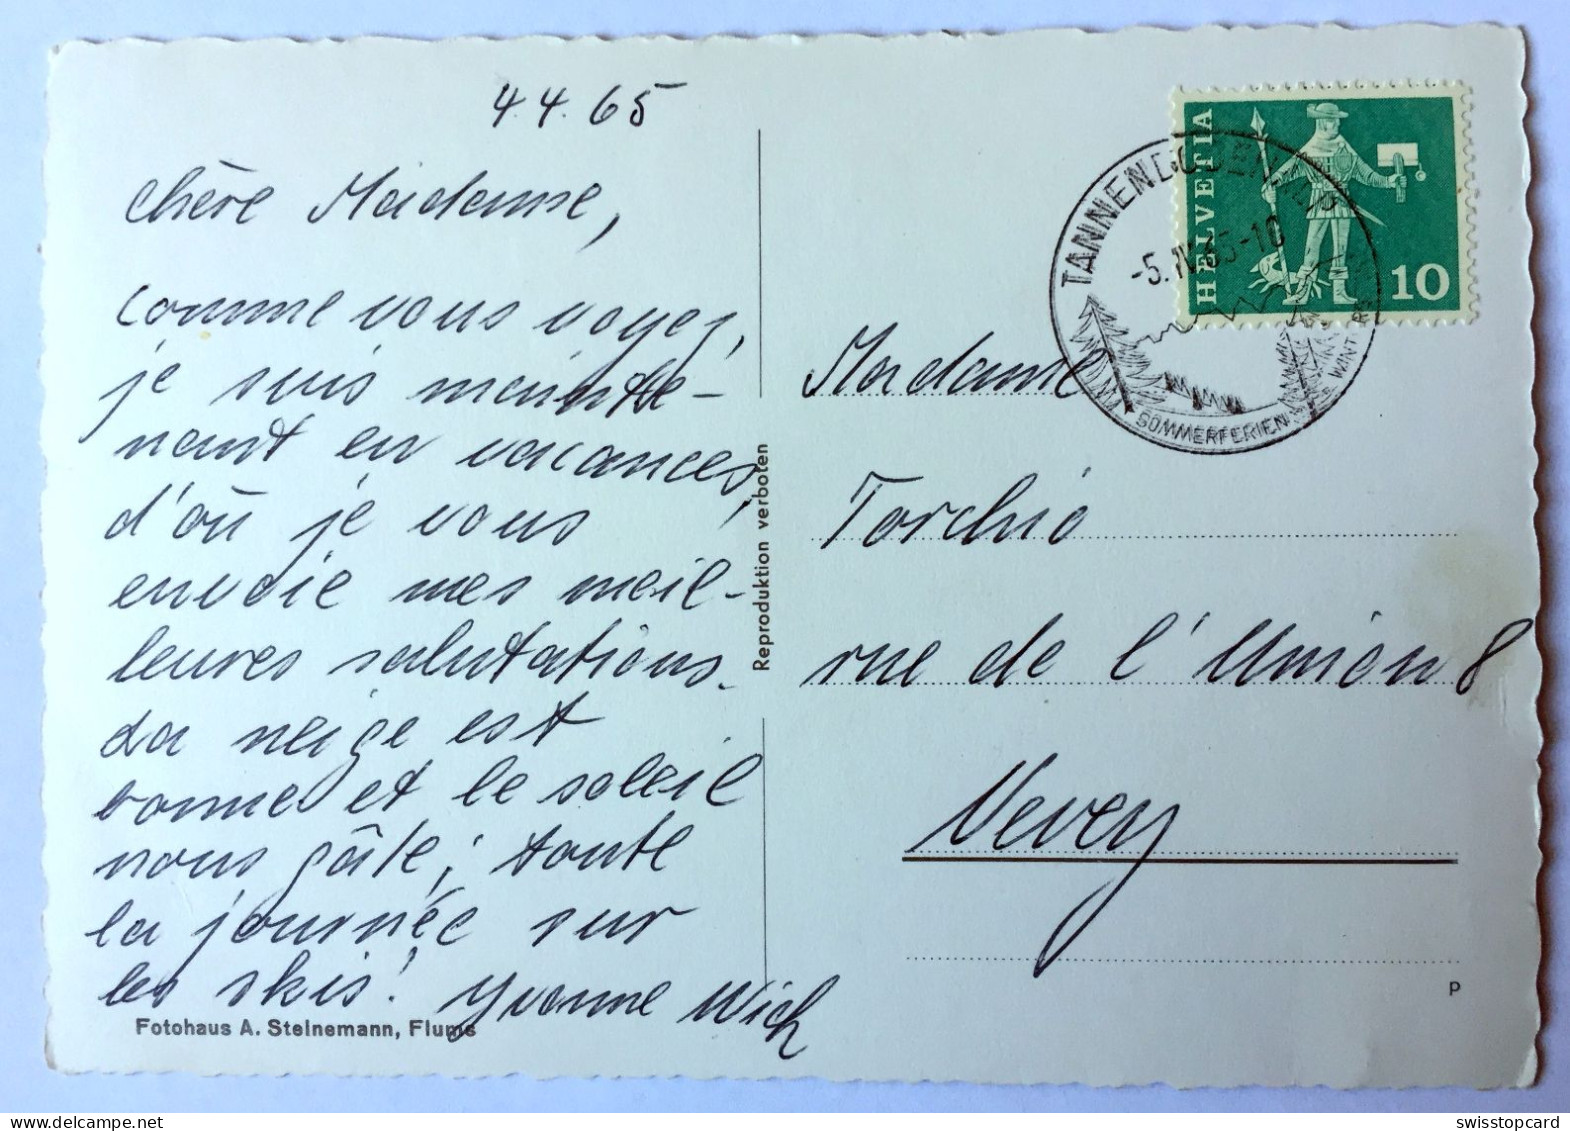 4.4.65
Chère Madame,
comme vous voyez,
je suis mainte-
nant en vacances,
d'où je vous
envoie mes meil-
leures salutations.
La neige est
bonne et le soleil
nous gâte; toute
la journée sur
les skis! Yvonne Wich
Fotohaus A. Steinemann, Flums
Reproduktion verboten
HELVETIA
10
TANNENBODENALP
-5.IV.65-10
SOMMERFERIEN
Madame
Torchio
rue de l'Union 8
Vevey
P
swisstopcard